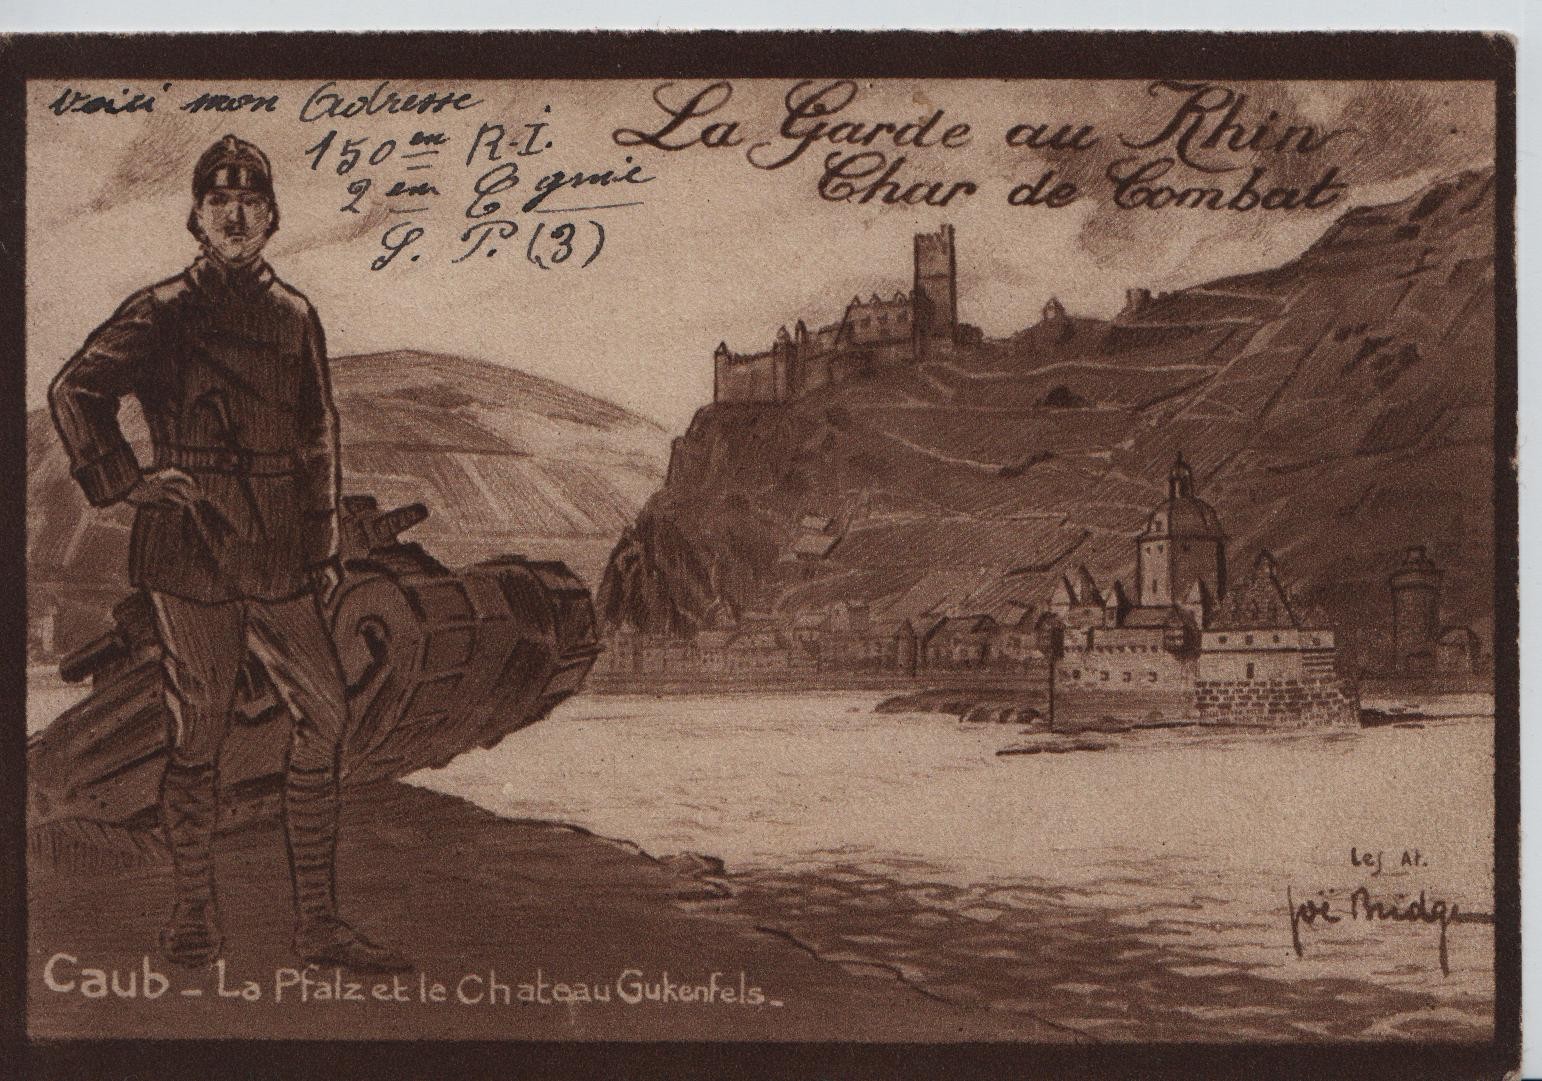 voici mon Adresse
150 em R.I.
2 em Cgnie
S. P. (3)
La Garde au Rhin
Char de Combat
Les At.
Joë Bridge
Caub - La Pfalz et le Chateau Gukenfels -